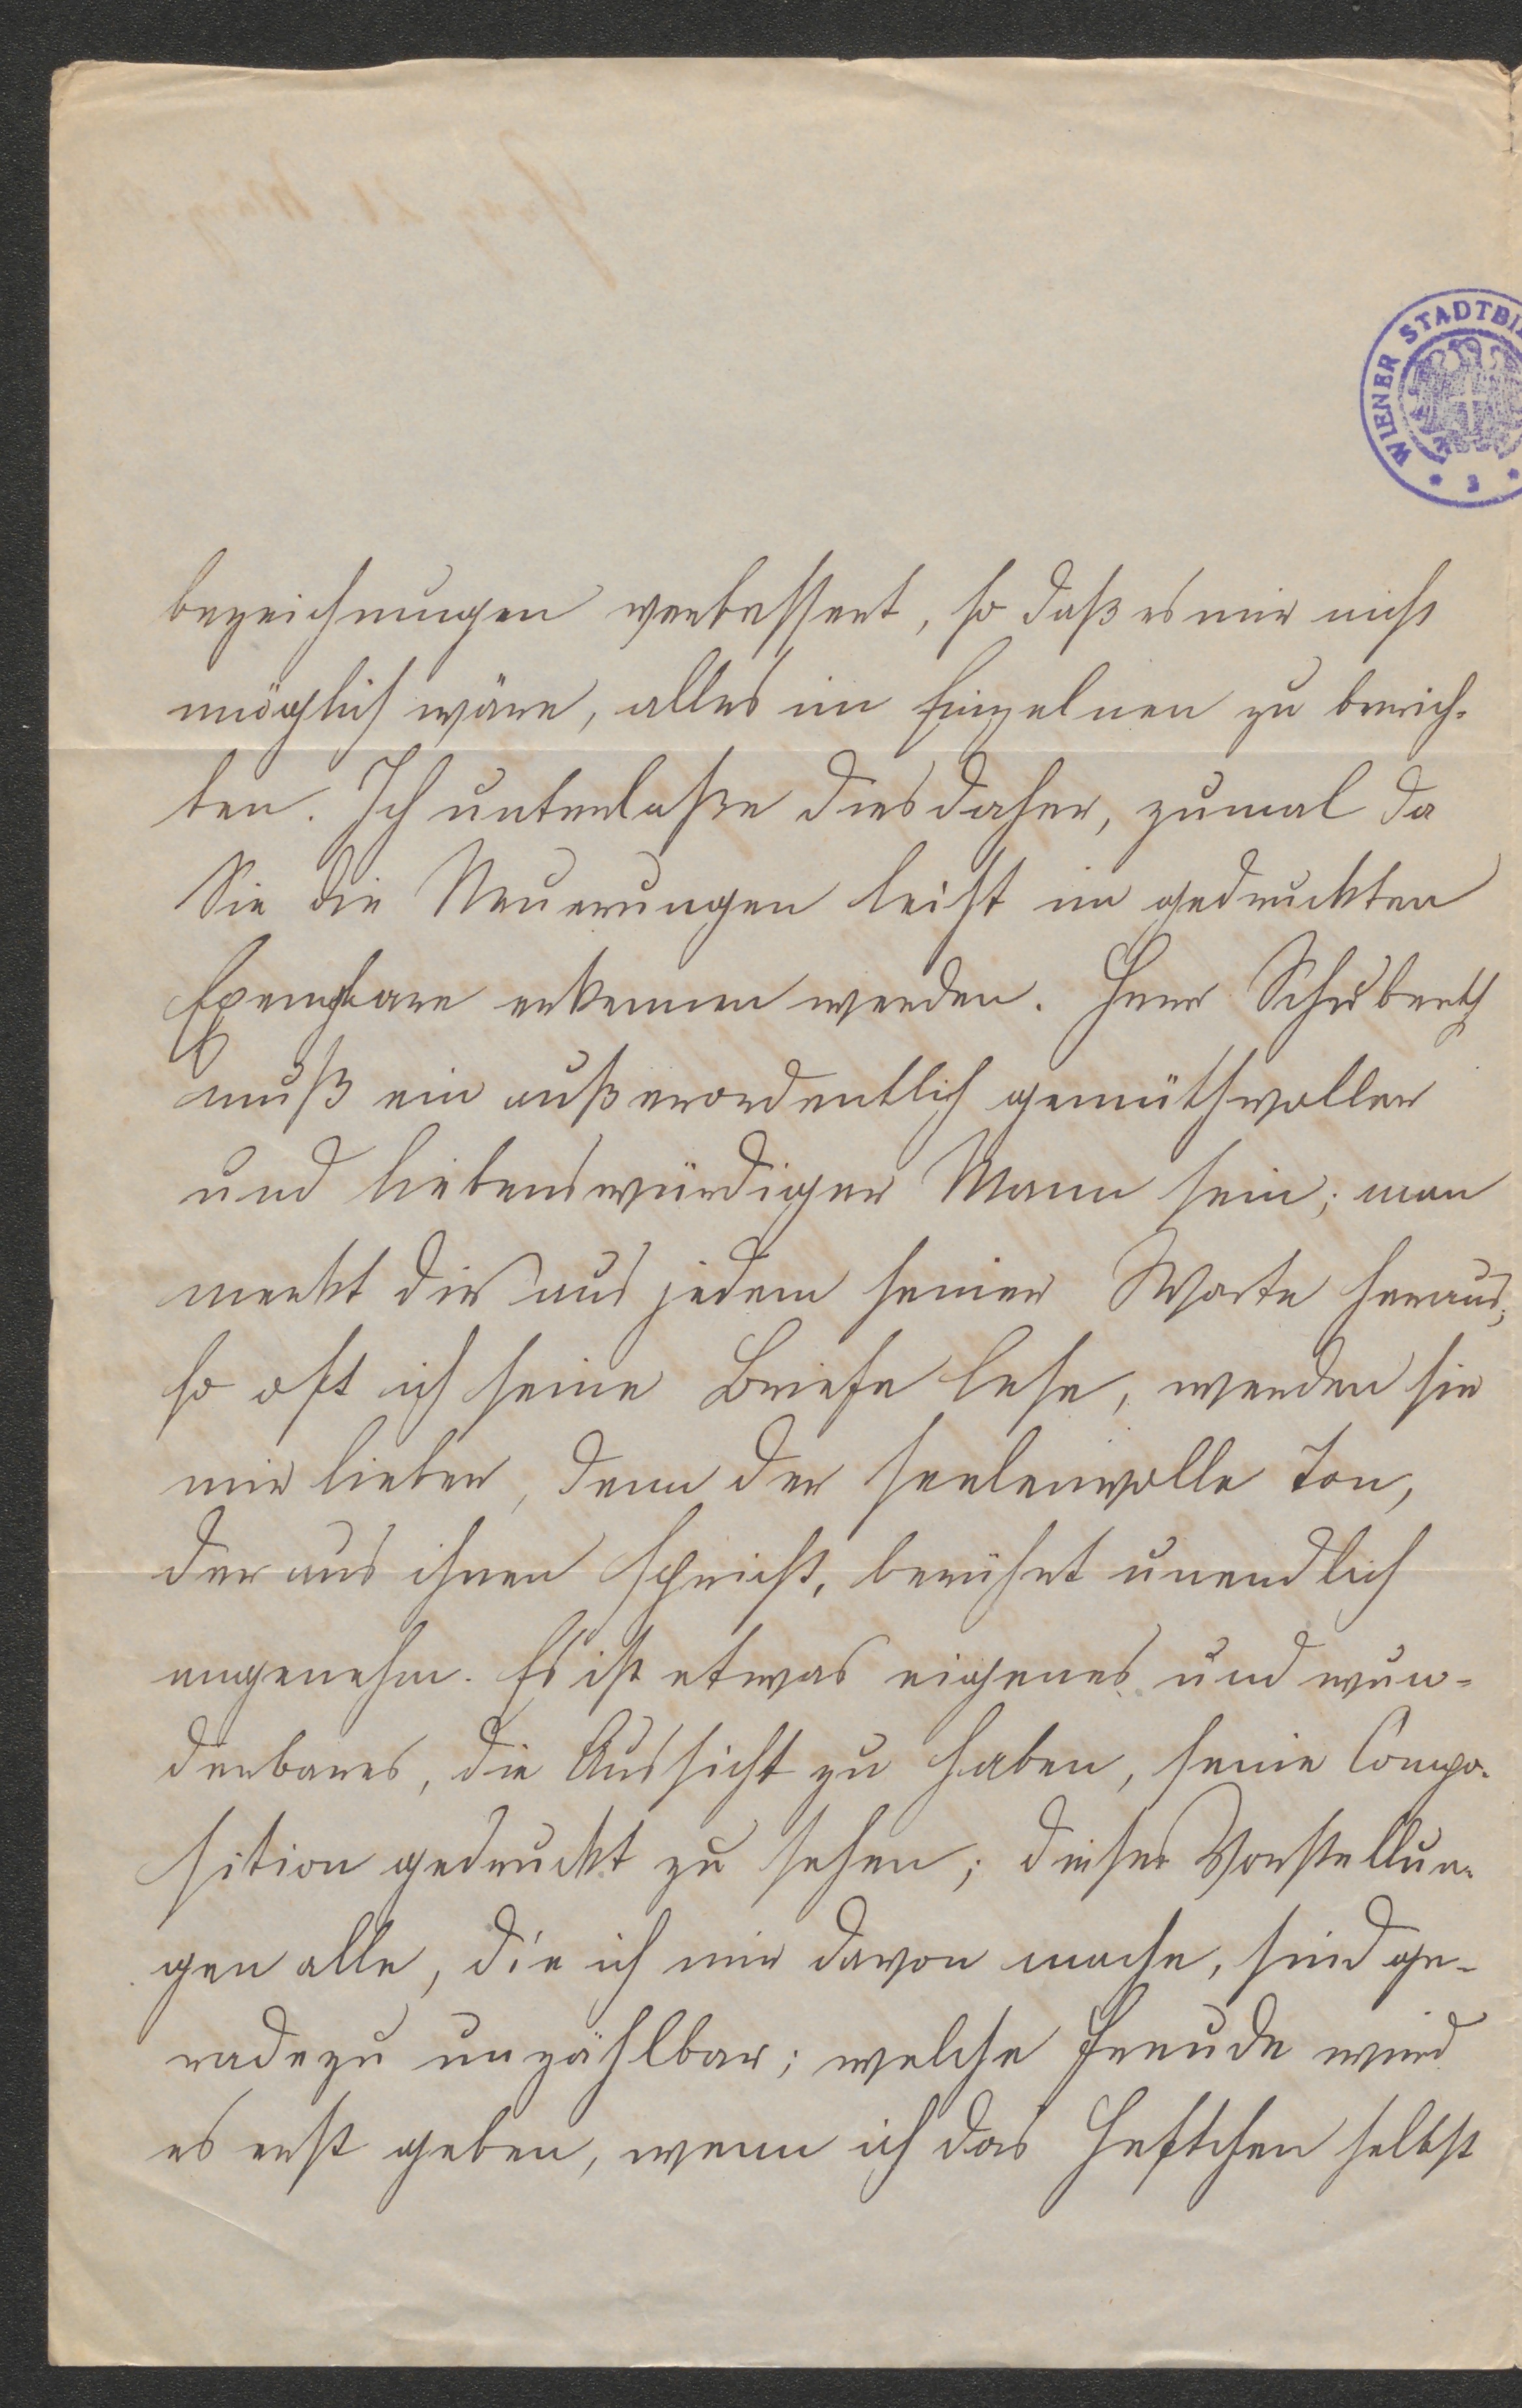 WIENER STADTBI
bezeichnungen verbessert, so daß es mir nicht
möglich wäre, alles im Einzelnen zu berich-
ten. Ich unterlaße dies daher, zumal da
Sie die Neuerungen leicht im gedruckten
Exemplare erkennen werden. Herr Schuberth
muß ein außerordentlich gemüthvoller
und liebenswürdiger Mann sein; man
merkt dies aus jedem seiner Worte heraus;
so oft ich seine Briefe lese, werden sie
mir lieber, denn der seelenvolle Ton,
der aus ihnen spricht, berührt unendlich
angenehm. Es ist etwas eigenes und wun-
derbares, die Aussicht zu haben, seine Compo-
sition gedruckt zu sehen; dieser Vorstellun-
gen alle, die ich mir davon mache, sind ge-
radezu unzählbar; welche Freude wird
es erst geben, wenn ich das Heftchen selbst